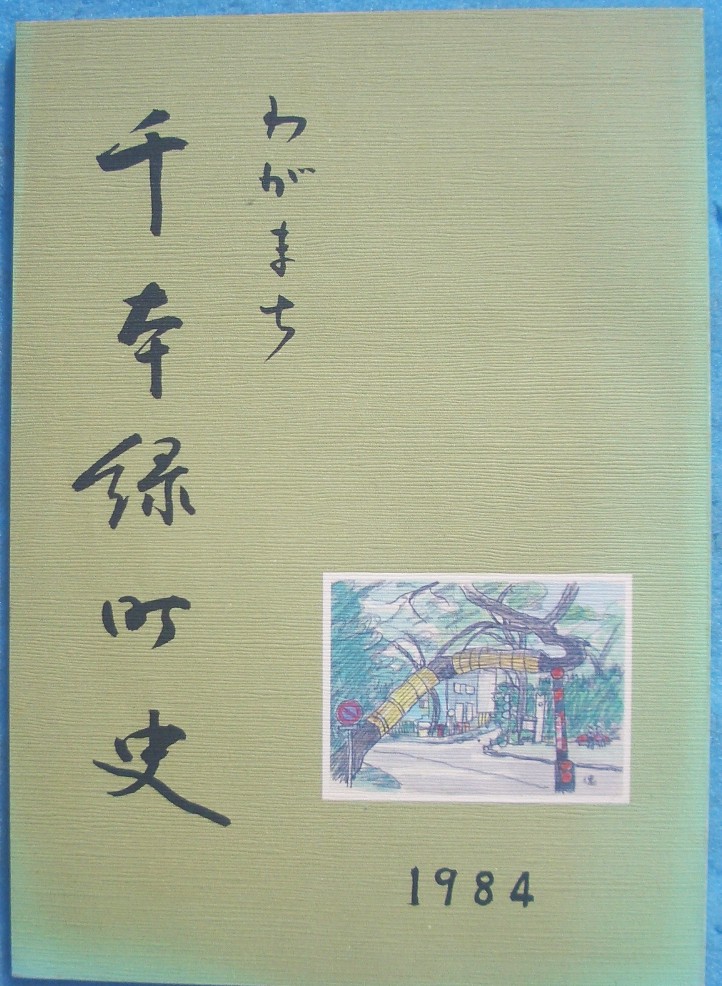 わがまち
千本緑町史
1984